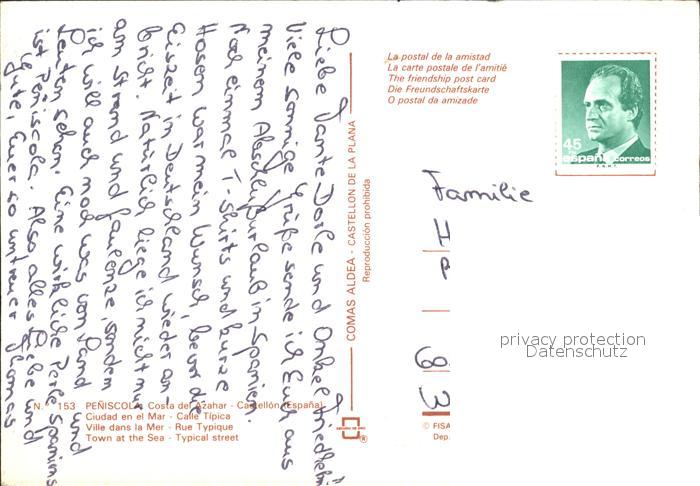 Liebe Tante Dorle und Onkel Friedhelm
Viele sonnige Grüße sende ich Euch aus
meinem Abschlußurlaub in Spanien.
Noch einmal T-Shirts und kurze
Hosen war mein Wunsch, bevor die
Eiszeit in Deutschland wieder an-
bricht. Natürlich liege ich nicht nur
am Strand und faulenze, sondern
ich will auch noch was von Land und
Leuten sehen. Eine wirkliche Perle Spaniens
ist Peñiscola. Also alles Liebe und
Gute, Euer so untreuer Thomas
N.° 153 PEÑISCOLA Costa del Azahar - Castellón (España)
Ciudad en el Mar - Calle Típica
Ville dans la Mer - Rue Typique
Town at the Sea - Typical street
COMAS ALDEA - CASTELLON DE LA PLANA
Reproducción prohibida
La postal de la amistad
La carte postale de l'amitié
The friendship post card
Die Freundschaftskarte
O postal da amizade
45
españa correos
Familie
H
P
6
W
privacy protection
Datenschutz
© FISA
Dep.